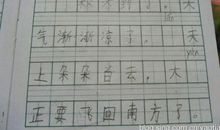 秋天到了,天
气渐渐凉了。天
上朵朵白云,大
正要飞回南方了。